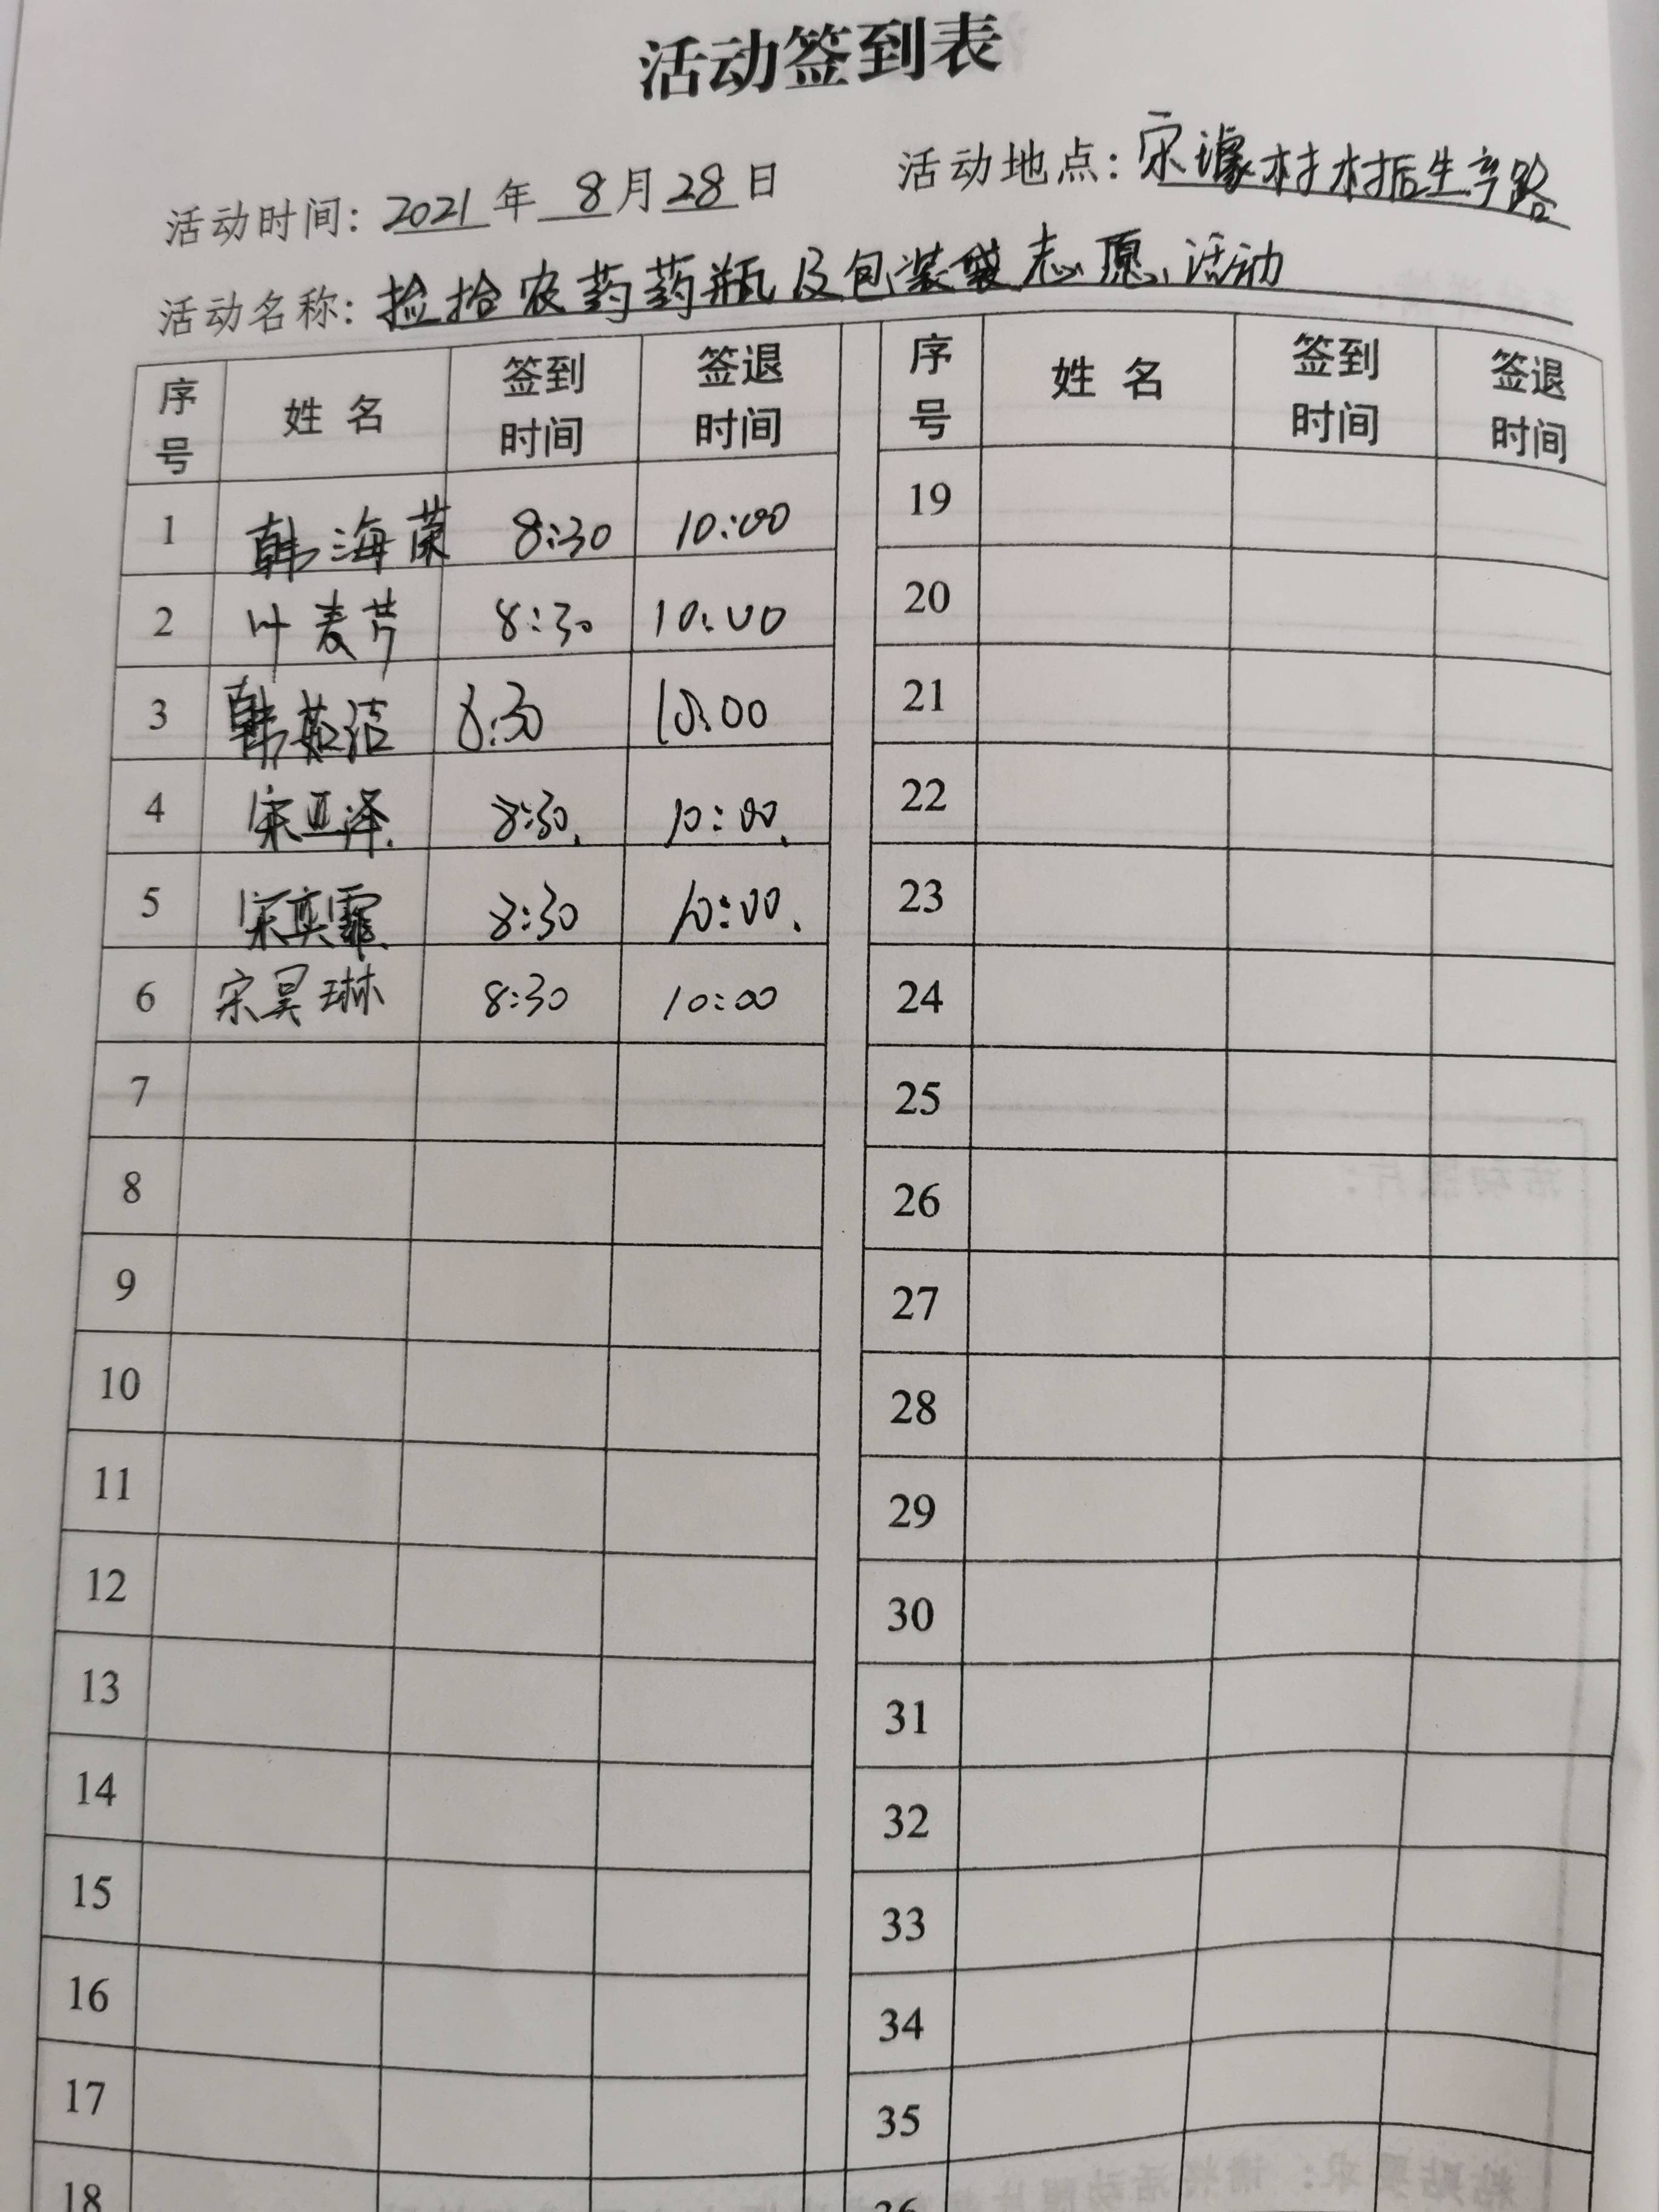 活动签到表
活动时间: 2021 年 8 月 28 日 活动地点: 宋 村村后生产路
活动名称: 捡拾农药药瓶及包装袋志愿活动
序号 姓名 签到时间 签退时间 序号 姓名 签到时间 签退时间
1 韩海荣 8:30 10:00 19
2 叶麦芹 8:30 10:00 20
3 韩茹洁 8:30 10:00 21
4 宋亚泽 8:30 10:00 22
5 宋奕霏 8:30 10:00 23
6 宋昊琳 8:30 10:00 24
7 25
8 26
9 27
10 28
11 29
12 30
13 31
14 32
15 33
16 34
17 35
18 36